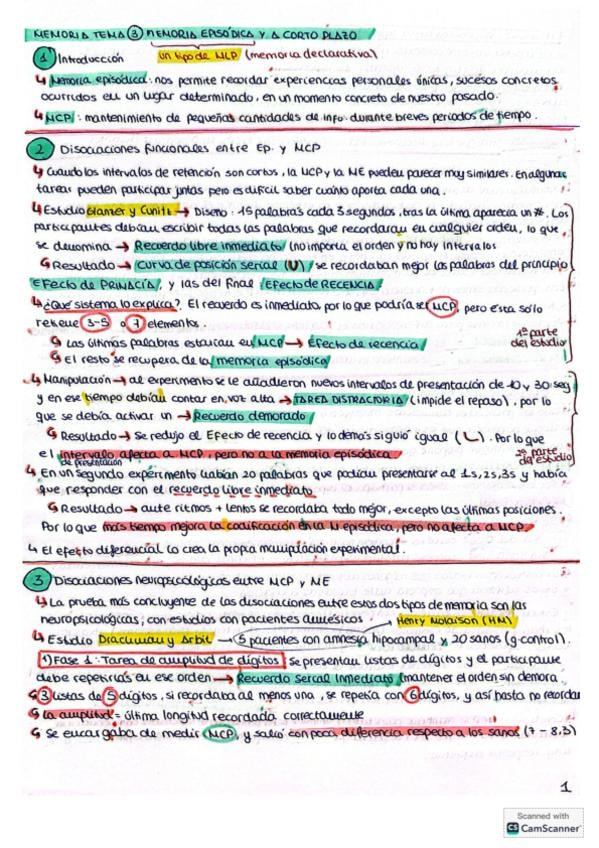 MEMORIA TEMA 3 MEMORIA EPISÓDICA Y A CORTO PLAZO
1 Introducción un tipo de MLP (memoria declarativa)
↳ Memoria episódica: nos permite recordar experiencias personales únicas, sucesos concretos
ocurridos en un lugar determinado, en un momento concreto de nuestro pasado.
↳ MCP: mantenimiento de pequeñas cantidades de info. durante breves periodos de tiempo.
2 Disociaciones funcionales entre Ep. y MCP
↳ Cuando los intervalos de retención son cortos, la MCP y la ME pueden parecer muy similares. En algunas
tareas pueden participar juntas pero es difícil saber cuánto aporta cada una.
↳ Estudio Glanzer y Cunitz → Diseño: 15 palabras cada 3 segundos, tras la última aparecía un #. Los
participantes debían escribir todas las palabras que recordaran en cualquier orden, lo que
se denomina → Recuerdo libre inmediato (no importa el orden y no hay intervalos
↳ Resultado → Curva de posición serial (U) / se recordaban mejor las palabras del principio
EFecto de PRIMACÍA, y las del final EFecto de RECENCIA
↳ ¿Qué sistema lo explica? El recuerdo es inmediato, por lo que podría ser MCP, pero ésta sólo
retiene 3-5 o 7 elementos.
↳ Las últimas palabras estarían en MCP → Efecto de recencia
↳ El resto se recupera de la memoria episódica
1ª parte
del estudio
↳ Manipulación → al experimento se le añadieron nuevos intervalos de presentación de 10 y 30 seg
y en ese tiempo debían contar en voz alta → TAREA DISTRACTORIA (impide el repaso), por lo
que se debía activar un → Recuerdo demorado
↳ Resultado → Se redujo el Efecto de recencia y lo demás siguió igual. Por lo que
el intervalo afecta a MCP, pero no a la memoria episódica.
2ª parte
del estudio
de presentación
↳ En un segundo experimento habían 20 palabras que podían presentarse al 1s, 2s, 3s y había
que responder con el recuerdo libre inmediato
↳ Resultado → ante ritmos + lentos se recordaba todo mejor, excepto las últimas posiciones.
Por lo que más tiempo mejora la codificación en la M episódica, pero no afecta a MCP.
↳ El efecto diferencial lo crea la propia manipulación experimental.
3 Disociaciones neuropsicológicas entre MCP y ME
↳ La prueba más concluyente de las disociaciones entre estos dos tipos de memoria son las
neuropsicológicas; con estudios con pacientes amnésicos Henry Molaison (HM)
↳ Estudio Drachman y Arbit → 5 pacientes con amnesia hipocampal y 20 sanos (g.control).
1) Fase 1: Tarea de amplitud de dígitos: se presentan listas de dígitos y el participante
debe repetirlas en ese orden → Recuerdo serial Inmediato (mantener el orden sin demora
↳ 3 listas de 5 dígitos, si recordaba al menos una, se repetía con 6 dígitos, y así hasta no recordar
↳ La amplitud = última longitud recordada correctamente
↳ Se encargaba de medir MCP, y salió con poca diferencia respecto a los sanos (7 - 8,3)
1
Scanned with
CS CamScanner